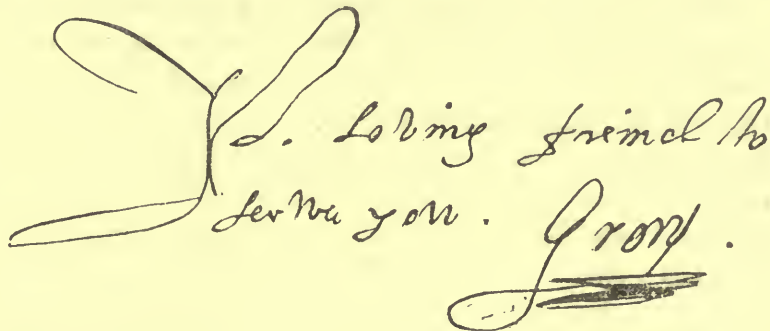 Yr. loving freind to
serve you. Gray.